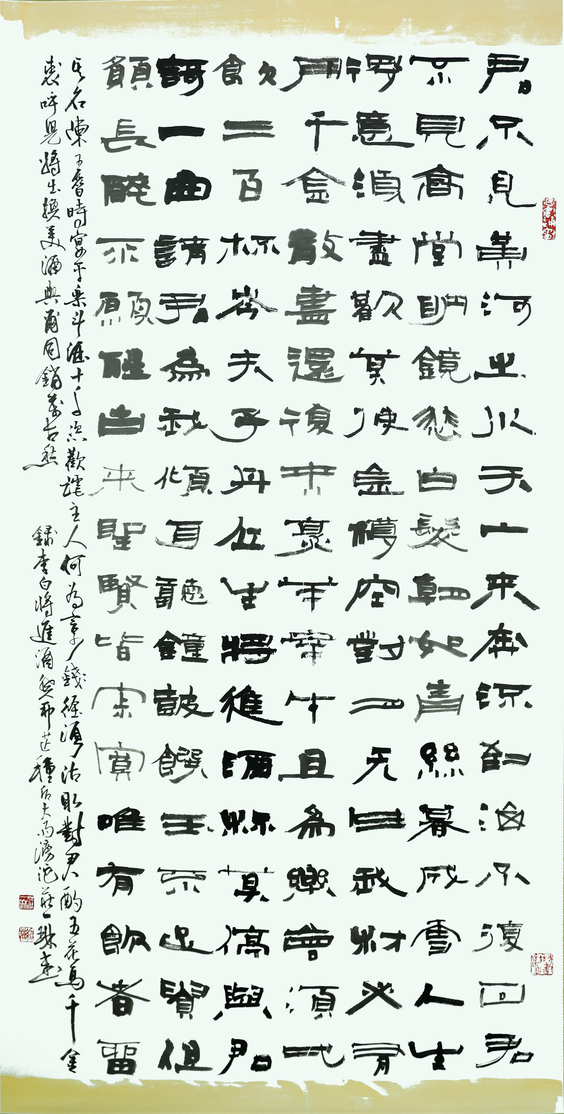 君不見黃河之水天上來奔流到海不復回君
不見高堂明鏡悲白髮朝如青絲暮成雪人生
得意須盡歡莫使金樽空對月天生我材必有
用千金散盡還復來烹羊宰牛且為樂會須一
飲三百杯岑夫子丹丘生將進酒杯莫停與君
謌一曲請君為我傾耳聽鐘鼓饌玉不足貴但
願長醉不願醒古來聖賢皆寂寞唯有飲者留
其名陳王昔時宴平樂斗酒十千恣歡謔主人何為言少錢徑須沽取對君酌五花馬千金
裘呼兒將出換美酒與爾同銷萬古愁 錄李白將進酒癸卯芒種后大雨滂沱